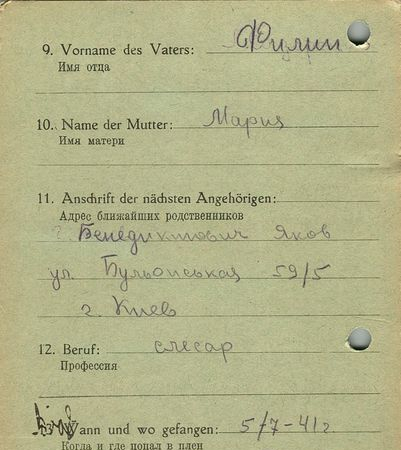 9. Vorname des Vaters: Филип
Имя отца
10. Name der Mutter: Мария
Имя матери
11. Anschrift der nächsten Angehörigen:
Адрес ближайших родственников
г. Бенедиктович Яков
ул. 59/5
г. Киев
12. Beruf: слесар
Профессия
Wann und wo gefangen: 5/7-41г
Когда и где попал в плен